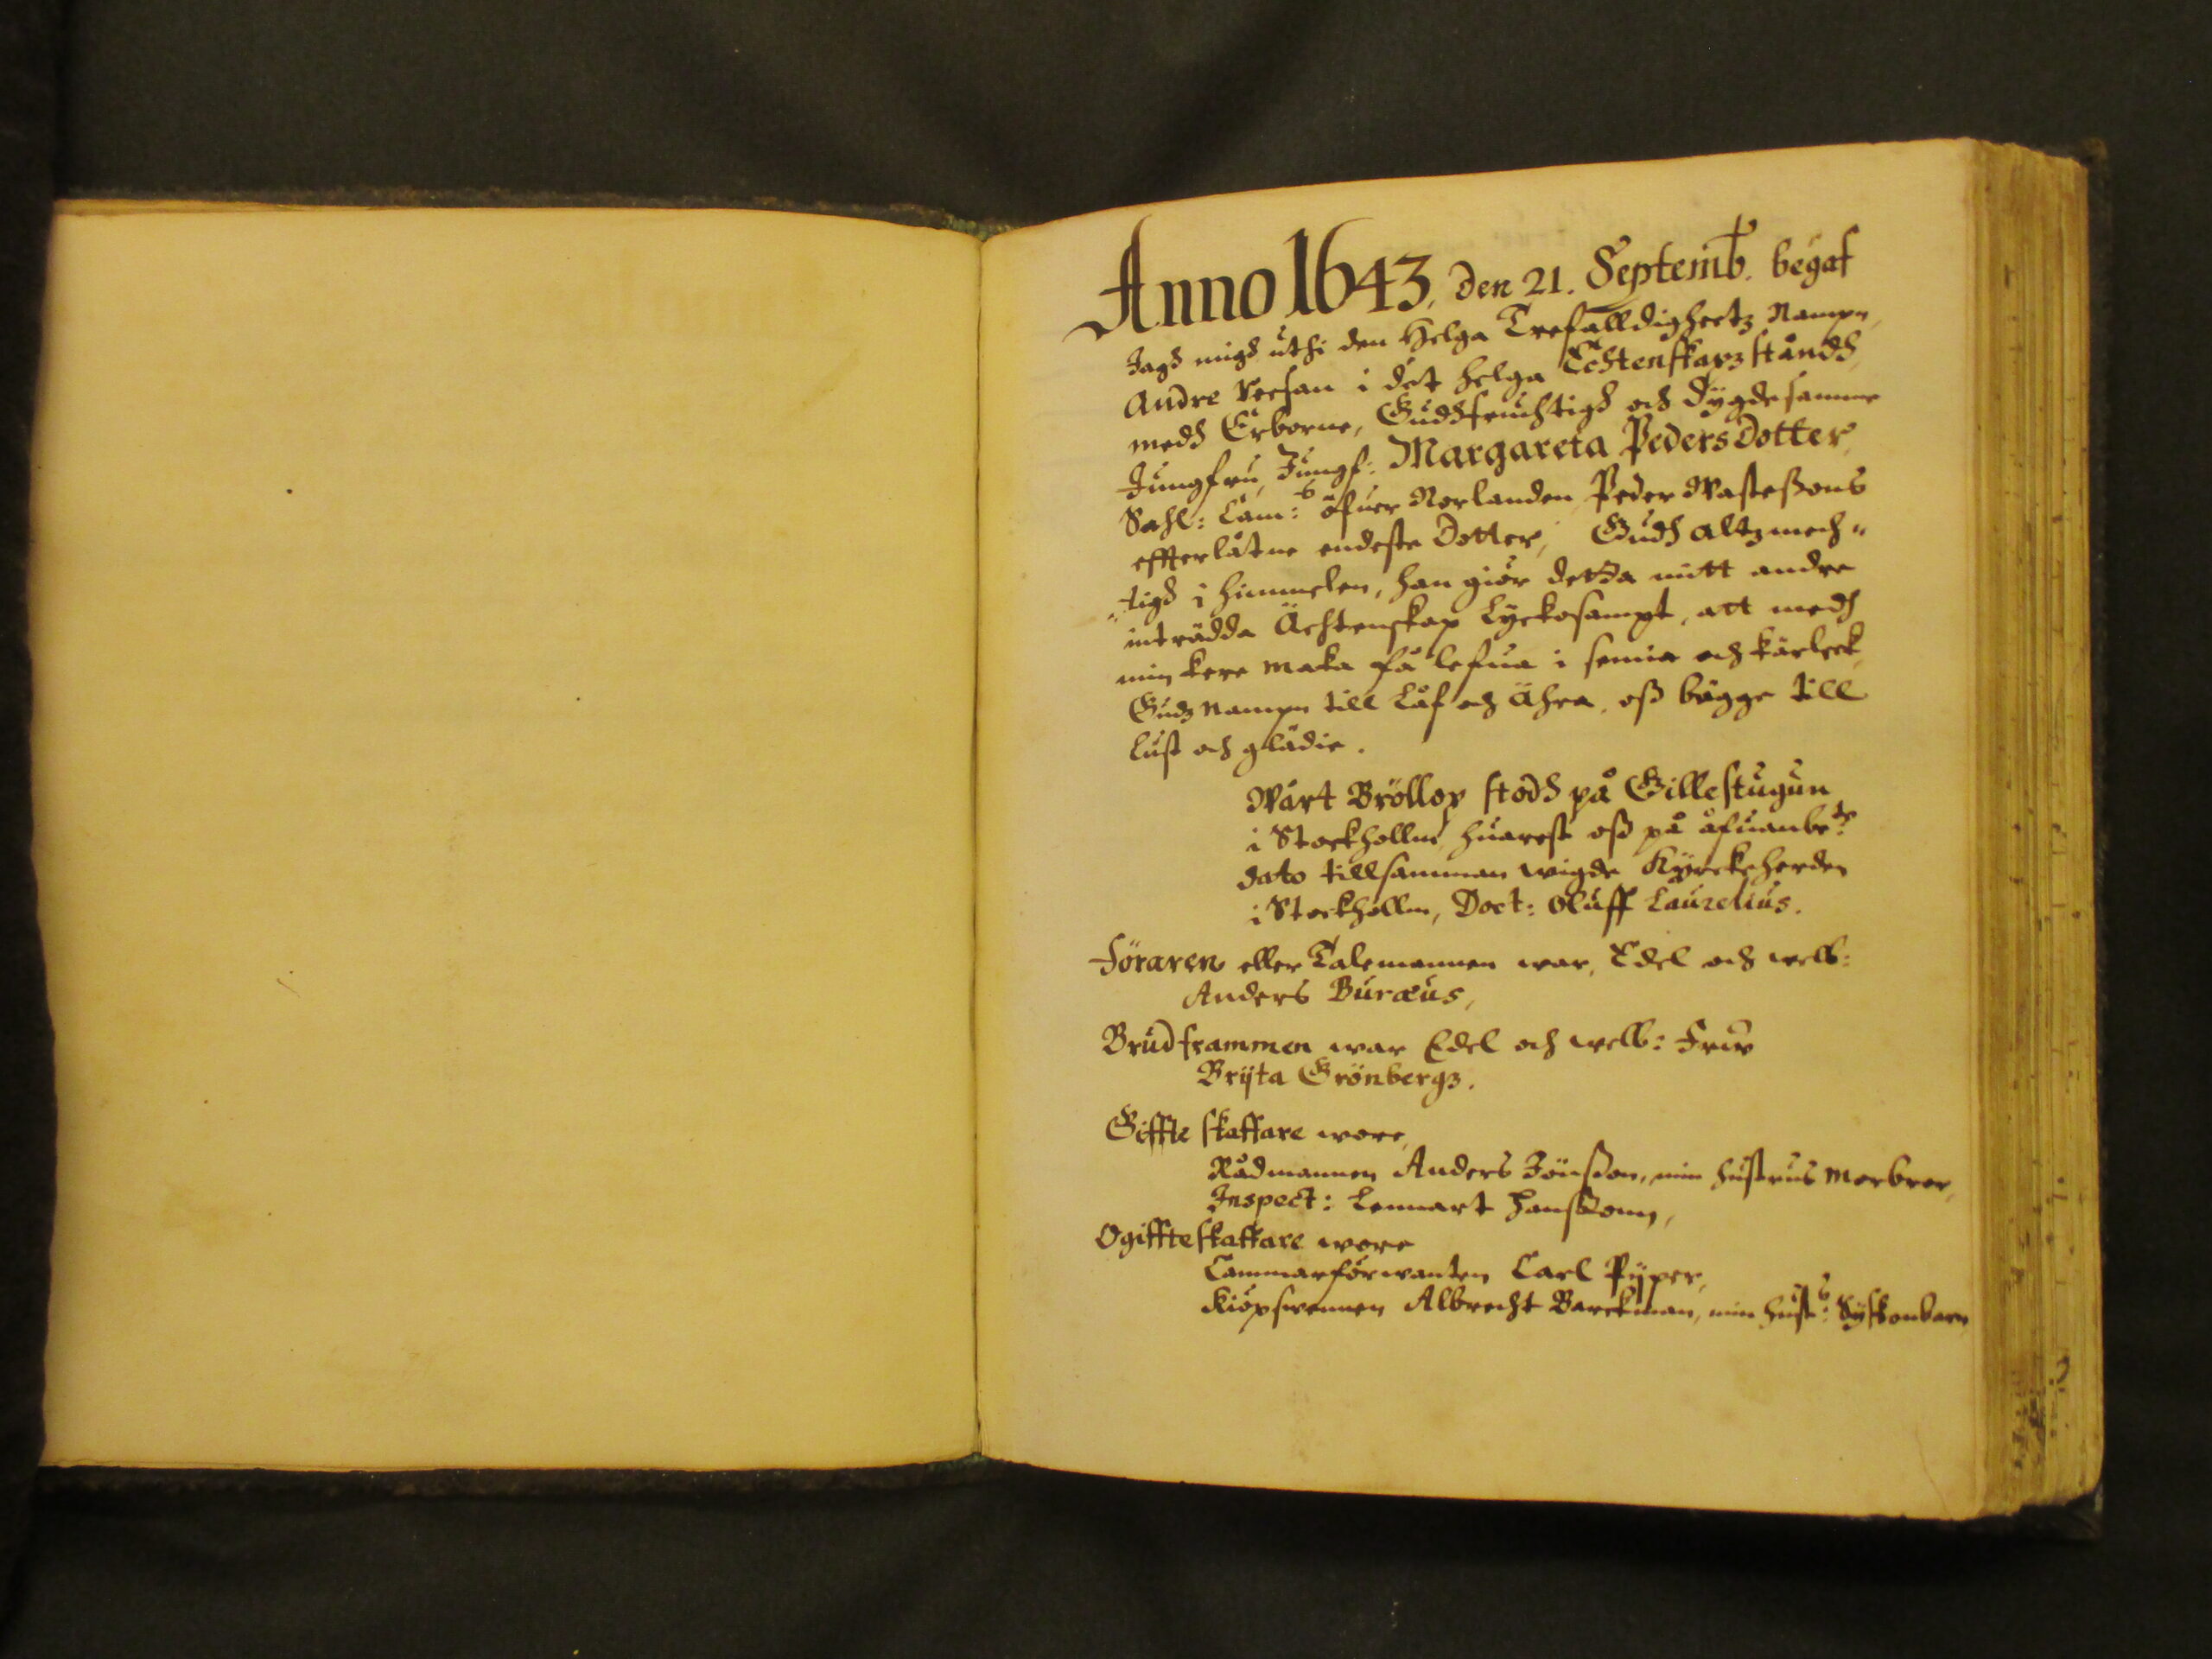 Anno 1643, den 21. Septemb. begaf
Jagh migh uthi den Helga Trefalldigheetz Nampn,
Andre Reesan i det helga Echtenskapz ståndh,
medh Erborne, Gudhfruchtigh och dygdesamme
Jungfru, Jungf: Margareta Pedersdotter,
Sahl: Cam: öfuer Norlanden Peder Wastessons
effterlåtne endeste Dotter, Gudh altzmech"
"tigh i himmelen, han giör detta mitt andre
inträdda Ächtenskap Lyckosampt, att medh
min kere maka få lefua i semia och kärleek,
Gudz Nampn till Låf och Ähra, oss bägge till
lust och glädie.
Wårt Bröllop stodh på Gillestugun
i Stockhollm, huarest oss på åfuanbe:te
dato tillsamman wigde Kyrkeherden
i Stockhollm, Doct: Oluff Laurelius.
Föraren eller Talemannen war, Edel och welb:
Anders Buræus,
Brudframmen war Edel och welb: Frw
Brijta Grönbergz.
Giffte skaffare wore,
Rådmannen Anders Jönsson, min hustrus Morbror,
Inspect: Lennart Hanssonn,
Ogiffte skaffare wore
Cammarförwanten Carl Pijper,
Kiöpswennen Albrecht Barckman, min hust:s Syskonbarn